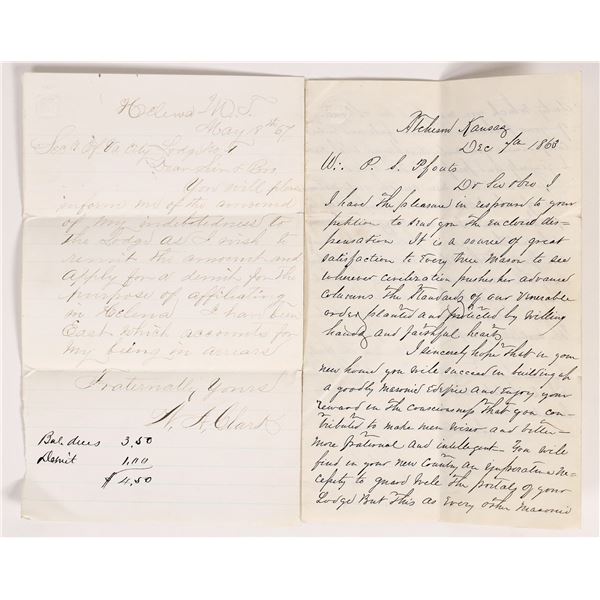 Helena M.T.
May 18th 67
Sec'k of Va City Lodge No 1
Dear Sir & Bro
You will please
inform me of the amount
of my indebtedness to
the Lodge as I wish to
remit the amount and
apply for a demit for the
purpose of affiliating
in Helena I have been
East which accounts for
my being in arrears
Fraternally Yours
Clark
Bal dues 3,50
Demit 1,00
$ 4,50
Atchison Kansas
Dec 7th 1863
W. P. S. Pfouts
Dr Sir & bro!
I have the pleasure in respound to your
petition to send you the enclosed dis-
pensation It is a source of great
satisfaction to every true Mason to see
wherever civilization pushes her advance
columns the standards of our venerable
order planted and protected by willing
hands and faithful hearts
I sincerely hope that in your
new home you will succeed in building up
a goodly masonic Edifice and enjoy your
reward in the consciousness that you con-
tributed to make men wiser and better-
more fraternal and intelligent- You will
find in your new Country an imperative ne-
cepity to guard well the portals of your
Lodge But this as every other masonic